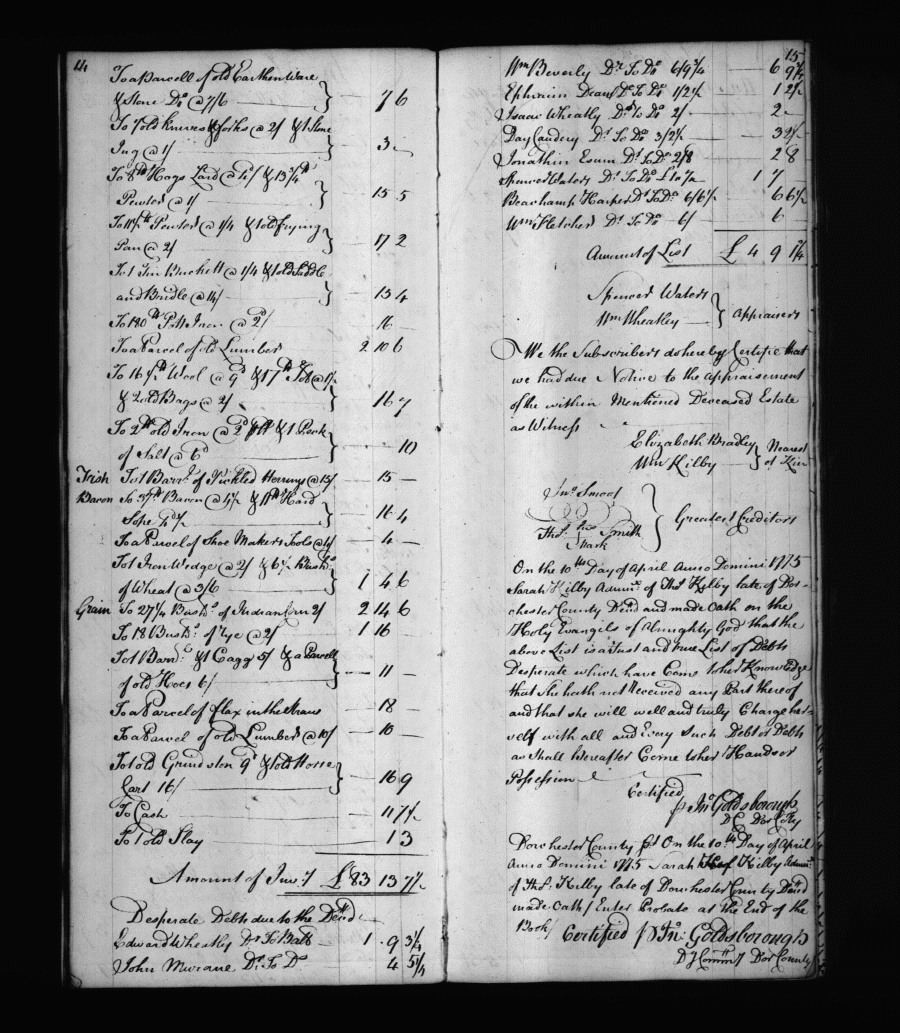 14
To a Parcell of old Earthen Ware
& Stone Do @ 7/6 7 6
To 7 old knives & forks @ 2/ & 1 Stone
Jug @ 1/ 3 -
To 8lb Hogs Lard @ & 13¾lb
Pewter @ 1/ 15 5
To lb Pewter @ 1/4 & 1 old frying
Pan @ 2/ 17 2
To 1 Tin Buckett @ 1/4 & 1 old Saddle
and Bridle @ 14/ 15 4
To 180lb Pott Iron @ 2d/ 16 -
To a Parcel of old Lumber 2 10 6
To 16½lb Wool @ 9d & 17lb @
& 2 old Bags @ 2/ 16 7
To 2lb old Iron @ 2d & 1 Peck
of Salt @ 6d 10
Irish To 1 Barrl of Pickled Herrings @ 15/ 15 -
Bacon To 37lb Bacon @ & 11lb Hard
Sope 16 4
To a Parcel of Shoe Makers Tools @ 4/ 4 -
To 1 Iron Wedge @ 2/ & 6½ Bushs
of Wheat @ 3/6 1 4 6
Grain To 27¼ Bushs of Indian Corn 2/ 2 14 6
To 18 Bushs of rye @ 2/ 1 16
To 1 Barrl & 1 Cagg 5/ & a Parcell
of old Hoes 6/ 11 -
To a Parcel of Flax in the Straw 18 -
To a Parcel of old Lumber @ 10/ 10 -
To 1 old Grindston 9d & 1 old Horse
Cart 16/ 16 9
To Cash 11 7½
To 1 old Slay 1 3
Amount of Invy £83 13 7½
Desperate Debts due to the Decd
Edward Wheatley Dr To Ball 1 9 3¼
John Murane Dr To Do 4 5¼
15
Wm Beverly Dr To Do 6/9¾ 6 9¾
Ephraim Dean Dr To Do 1/2½ 1 2½
Isaac Wheatly Dr To Do 2/ 2 -
Day Dr To Do 3/2½ 3 2½
Jonathin Esum Dr To Do 2/8 2 8
Spencer Waters Dr To Do 1 7
Beachamp Harper Dr To Do 6/6½ 6 6½
Wm Fletcher Dr To Do 6/ 6
Amount of List £ 4 9 1¾
Spencer Waters
Wm Wheatley } Appraisers
We the Subscribers do hereby Certifie that
we had due Notice to the appraisement
of the within Mentioned Deceased Estate
as Witness
Elizabeth Bradley
Wm Kilby } Nearest of Kin
Jno Smoot
Thos his Smith
Mark } Greatest Creditors
On the 10th Day of April Anno Domini 1775
Sarah Kilby Adminx of Thos Kilby late of Dor-
chester County Decd and made Oath on the
Holy Evangils of Almughty God that the
above List is a Just and true List of Debts
Desperate which have Come to her Knowledge
that she hath not Received any Part thereof
and that she will well and truly Charge her-
self with all and Every such Debt or Debts
as Shall hereafter Come to her Hands or
Possession
Certified
pr Jno Goldsborough
D C Dor Coty
Dorchester County sst On the 10th Day of April
Anno Domini 1775 Sarah Kilby Adminx
of Thos Kilby late of Dorchester County Decd
made Oath / Enter Probate at the End of the
Book / Certified pr Jno Goldsborough
Dy Commy Dor County